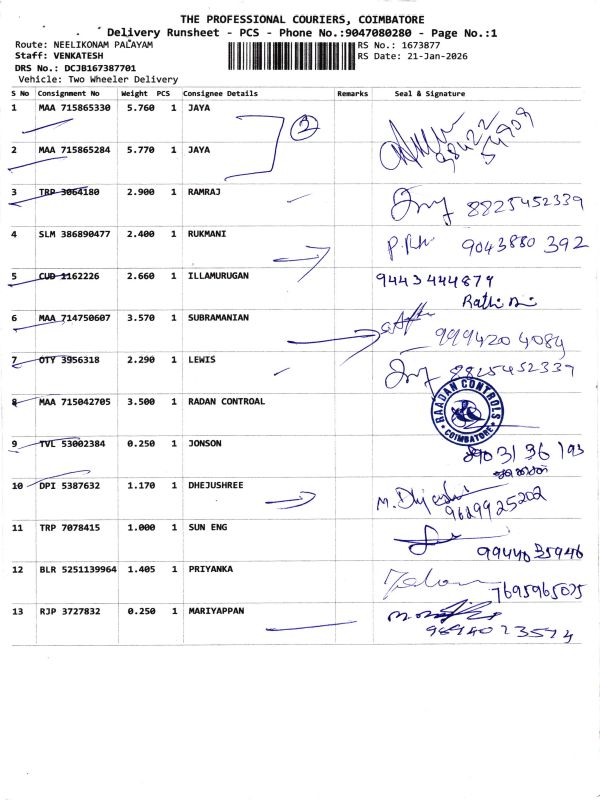 THE PROFESSIONAL COURIERS, COIMBATORE
Delivery Runsheet - PCS - Phone No.:9047080280 - Page No.:1
Route: NEELIKONAM PALAYAM RS No.: 1673877
Staff: VENKATESH RS Date: 21-Jan-2026
DRS No.: DCJB167387701
Vehicle: Two Wheeler Delivery
S No Consignment No Weight PCS Consignee Details Remarks Seal & Signature
1 MAA 715865330 5.760 1 JAYA
2
2 MAA 715865284 5.770 1 JAYA
3 TRP 3064180 2.900 1 RAMRAJ 8825452339
4 SLM 386890477 2.400 1 RUKMANI 9043880 392
5 CUD 1162226 2.660 1 ILLAMURUGAN 9443444879
6 MAA 714750607 3.570 1 SUBRAMANIAN 9994204084
7 OTY 3956318 2.290 1 LEWIS 8825452339
8 MAA 715042705 3.500 1 RADAN CONTROAL RAADAN CONTROLS COIMBATORE
9 TVL 53002384 0.250 1 JONSON
10 DPI 5387632 1.170 1 DHEJUSHREE 9629925202
11 TRP 7078415 1.000 1 SUN ENG 9944035946
12 BLR 5251139964 1.405 1 PRIYANKA 7695965075
13 RJP 3727832 0.250 1 MARIYAPPAN